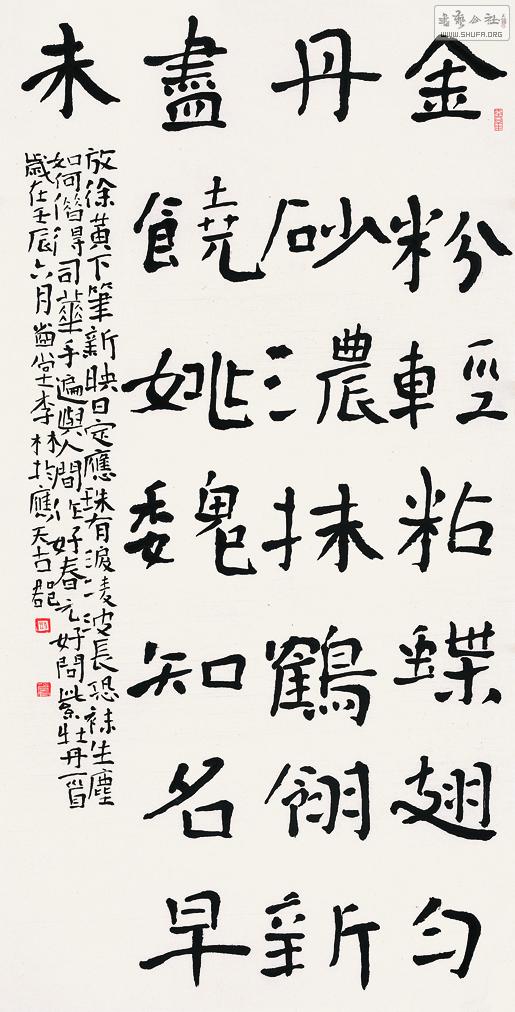 書藝公社
WWW.SHUFA.ORG
金粉輕粘蝶翅勻
丹砂濃抹鶴翎新
盡饒姚魏知名早
未
放徐黃下筆新映日定應珠有淚凌波長恐襪生塵
如何借得司華手遍與人間作好春元好問紫牡丹一首
歲在壬辰六月齒堂李林於應天古郡